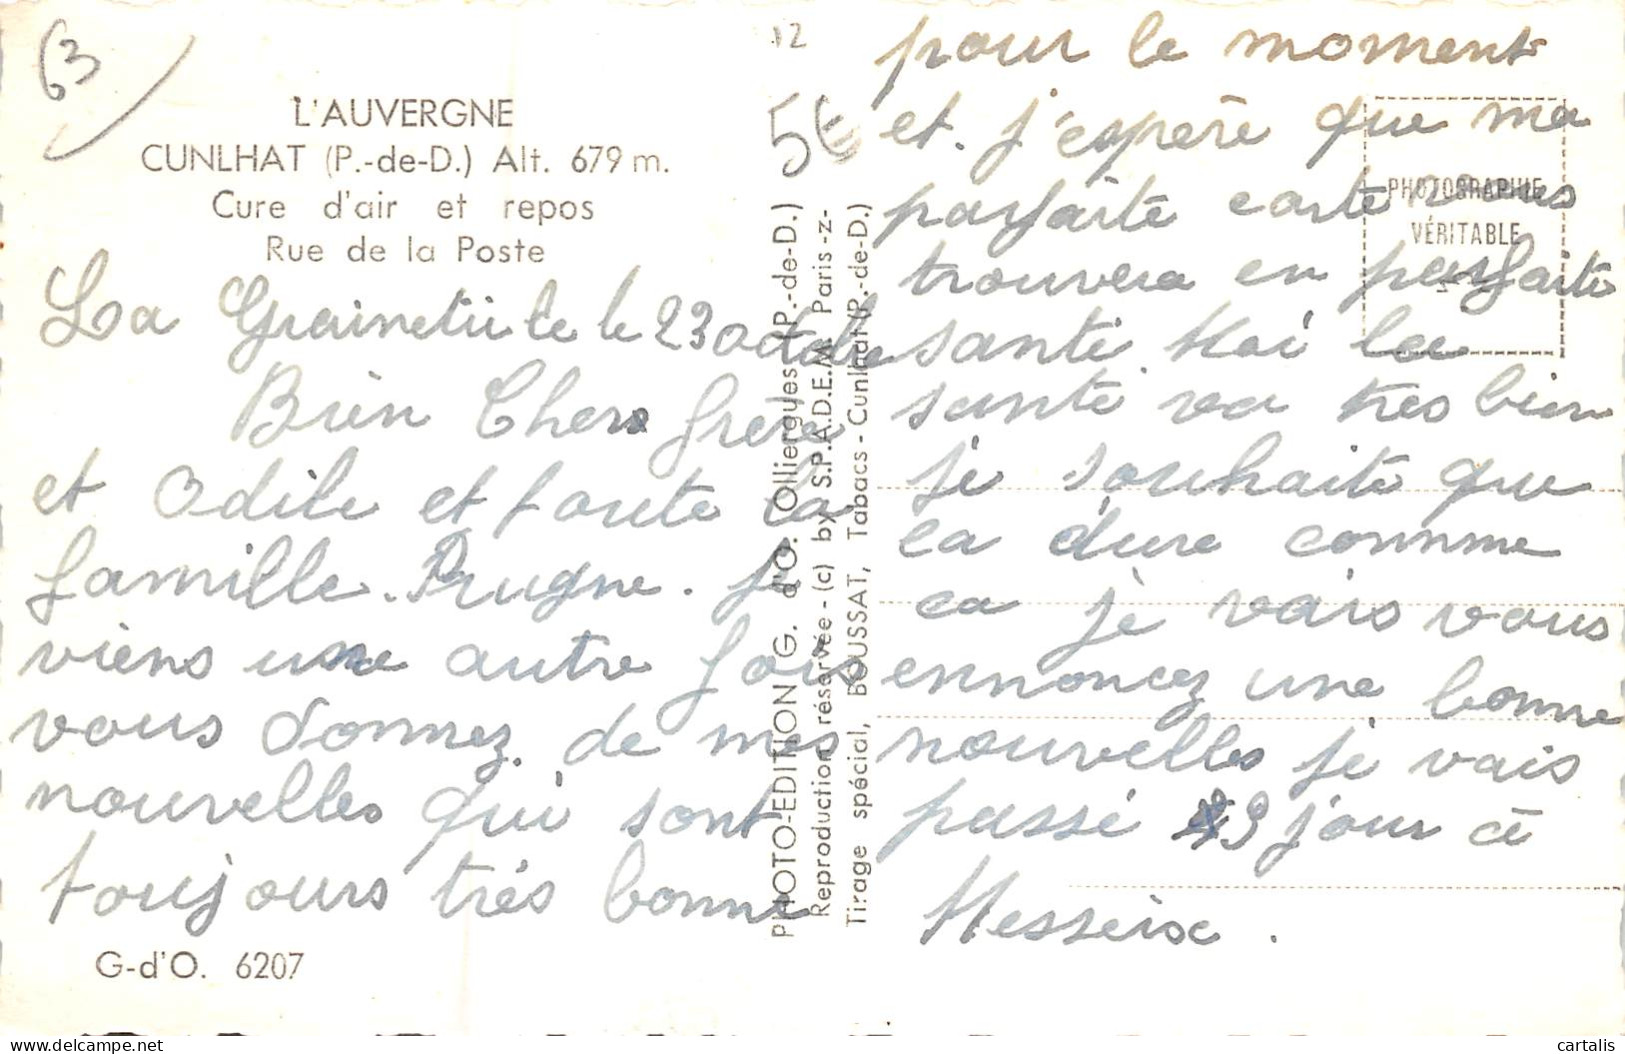 63
L'AUVERGNE
CUNLHAT (P.-de-D.) Alt. 679 m.
Cure d'air et repos
Rue de la Poste
La le 23 octobre
Bien Chers frère
et Odile et toute la
famille. Prugne. Je
viens une autre fois
vous donnez de mes
nouvelles qui sont
toujours très bonne
G-d'O. 6207
12
5€
PHOTO-EDITION G. d'O. Olliergues (P.-de-D.)
Reproduction réservée - (c) by S.P.A.D.E.M. Paris -z-
Tirage spécial, BOUSSAT, Tabacs - Cunlhat (P.-de-D.)
PHOTOGRAPHIE
VÉRITABLE
pour le moment
et. j'espère que ma
parfaite carte vous
trouvera en parfaite
santé Moi la
santé va très bien
je souhaite que
ca dure comme
ca je vais vous
ennoncez une bonne
nouvelles je vais
passé 9 jour à
Messeix.
cartalis